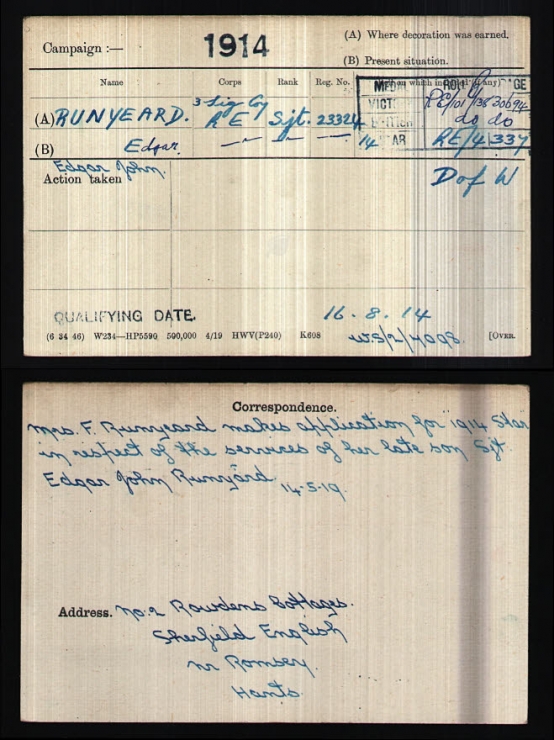 Campaign :— 1914
(A) Where decoration was earned.
(B) Present situation.
Name Corps Rank Reg. No.
MEDAL ROLL PAGE
(A) RUNYEARD. 3 Sig Coy R E Sjt. 23324
VICTORY RE/101 B8 20694
BRITISH do do
(B) Edgar. — — —
14 STAR RE/4 337
Edgar John.
Action taken D of W
QUALIFYING DATE. 16. 8. 14
(6 34 46) W234—HP5590 500,000 4/19 HWV(P240) K608 [OVER.
WS/2/4098
Correspondence.
Mrs. F. Runyeard makes application for 1914 Star
in respect of the services of her late son Sjt
Edgar John Runyard. 14-5-19.
Address. No. 2 Rowdens Cottages.
Sherfield English
nr Romsey.
Hants.